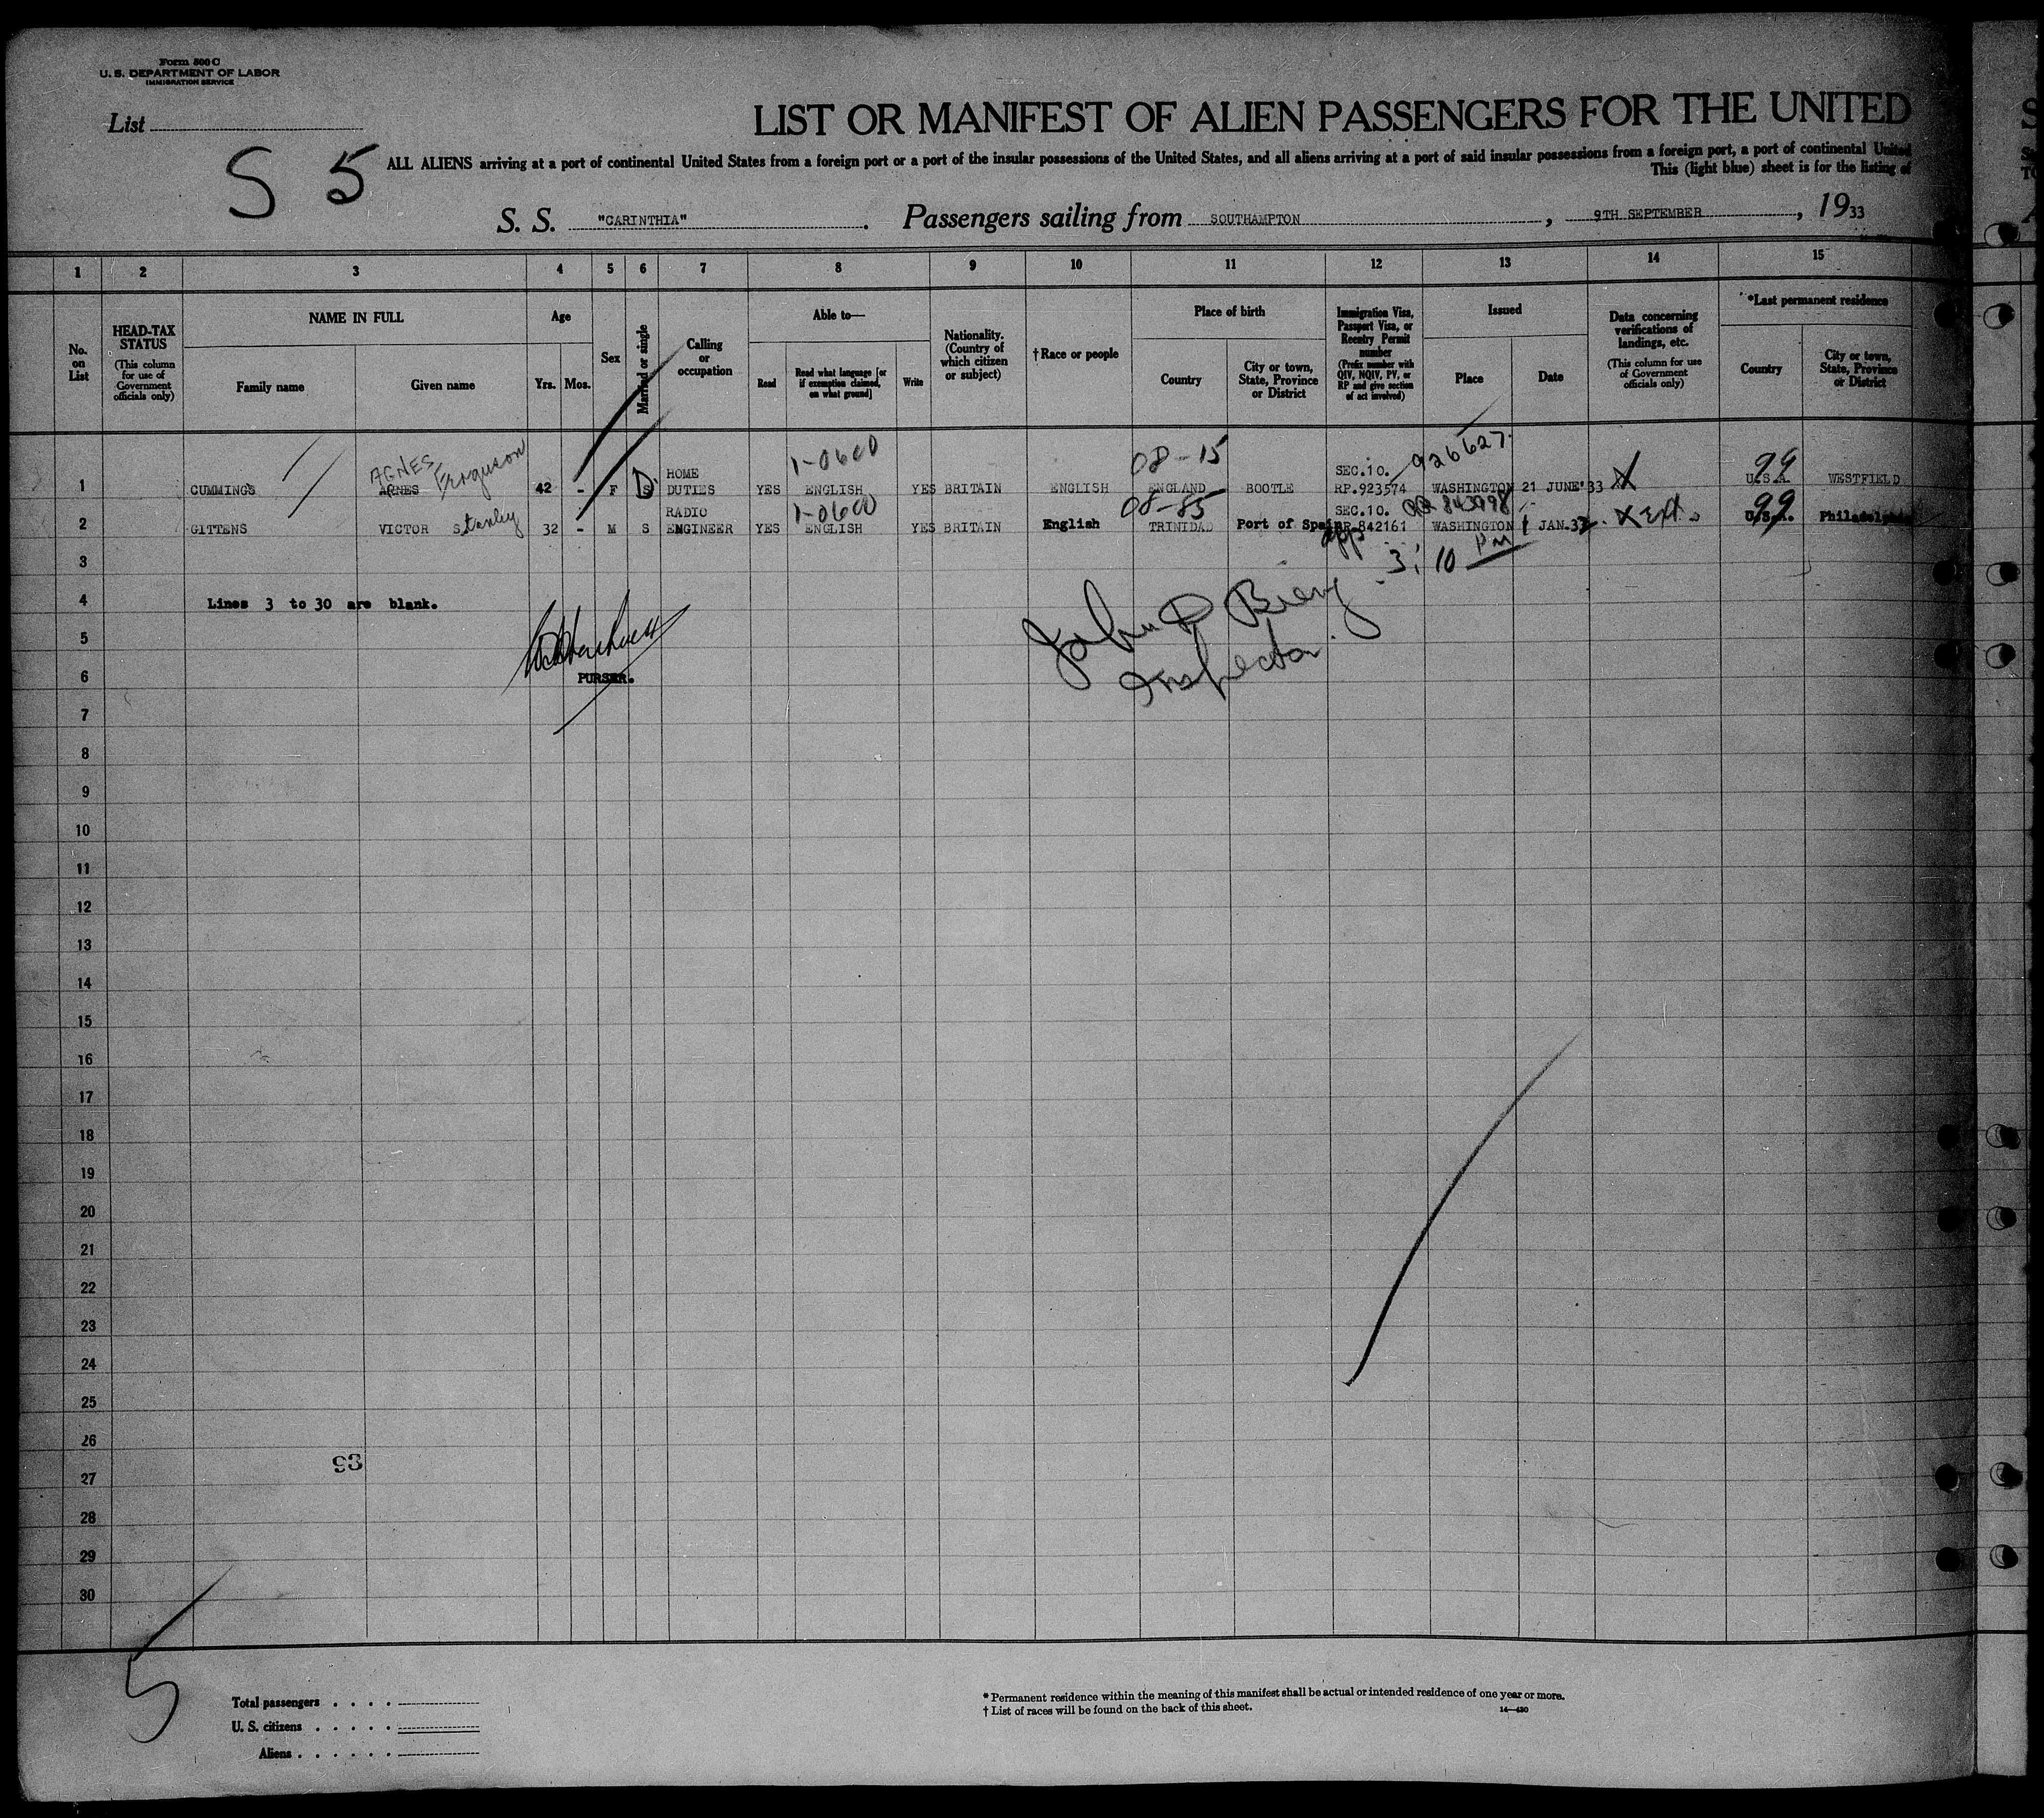 Form 500 C
U. S. DEPARTMENT OF LABOR
IMMIGRATION SERVICE
List
S 5
LIST OR MANIFEST OF ALIEN PASSENGERS FOR THE UNITED
ALL ALIENS arriving at a port of continental United States from a foreign port or a port of the insular possessions of the United States, and all aliens arriving at a port of said insular possessions from a foreign port, a port of continental United
This (light blue) sheet is for the listing of
S. S. "CARINTHIA". Passengers sailing from SOUTHAMPTON, 9TH SEPTEMBER, 1933
1 2 3 4 5 6 7 8 9 10 11 12 13 14 15
No. on List
HEAD-TAX STATUS
(This column for use of Government officials only)
NAME IN FULL
Family name Given name
Age
Yrs. Mos.
Sex
Married or single
Calling or occupation
Able to—
Read Read what language [or if exemption claimed, on what ground] Write
Nationality. (Country of which citizen or subject)
†Race or people
Place of birth
Country City or town, State, Province or District
Immigration Visa, Passport Visa, or Reentry Permit number
(Prefix number with QIV, NQIV, PV, or RP and give section of act involved)
Issued
Place Date
Data concerning verifications of landings, etc.
(This column for use of Government officials only)
*Last permanent residence
Country City or town, State, Province or District
AGNES Ferguson 1-0600 08-15 926627. 99
1 CUMMINGS AGNES 42 - F S D HOME DUTIES YES ENGLISH YES BRITAIN ENGLISH ENGLAND BOOTLE SEC.10. RP.923574 WASHINGTON 21 JUNE'33 X U.S.A. WESTFIELD
1-0600 08-85 99
2 GITTENS VICTOR Stanley 32 - M S RADIO ENGINEER YES ENGLISH YES BRITAIN English TRINIDAD Port of Spain SEC.10. 842161 WASHINGTON JAN.33 X Ext. U.S.A. Philadelphia
3
app 3:10 PM
4 Lines 3 to 30 are blank.
John P
5
Inspector
6 PURSER.
7
8
9
10
11
12
13
14
15
16
17
18
19
20
21
22
23
24
25
26
93
27
28
29
30
5
Total passengers . . . .
U. S. citizens . . . . .
Aliens . . . . . .
* Permanent residence within the meaning of this manifest shall be actual or intended residence of one year or more.
† List of races will be found on the back of this sheet.
14—430